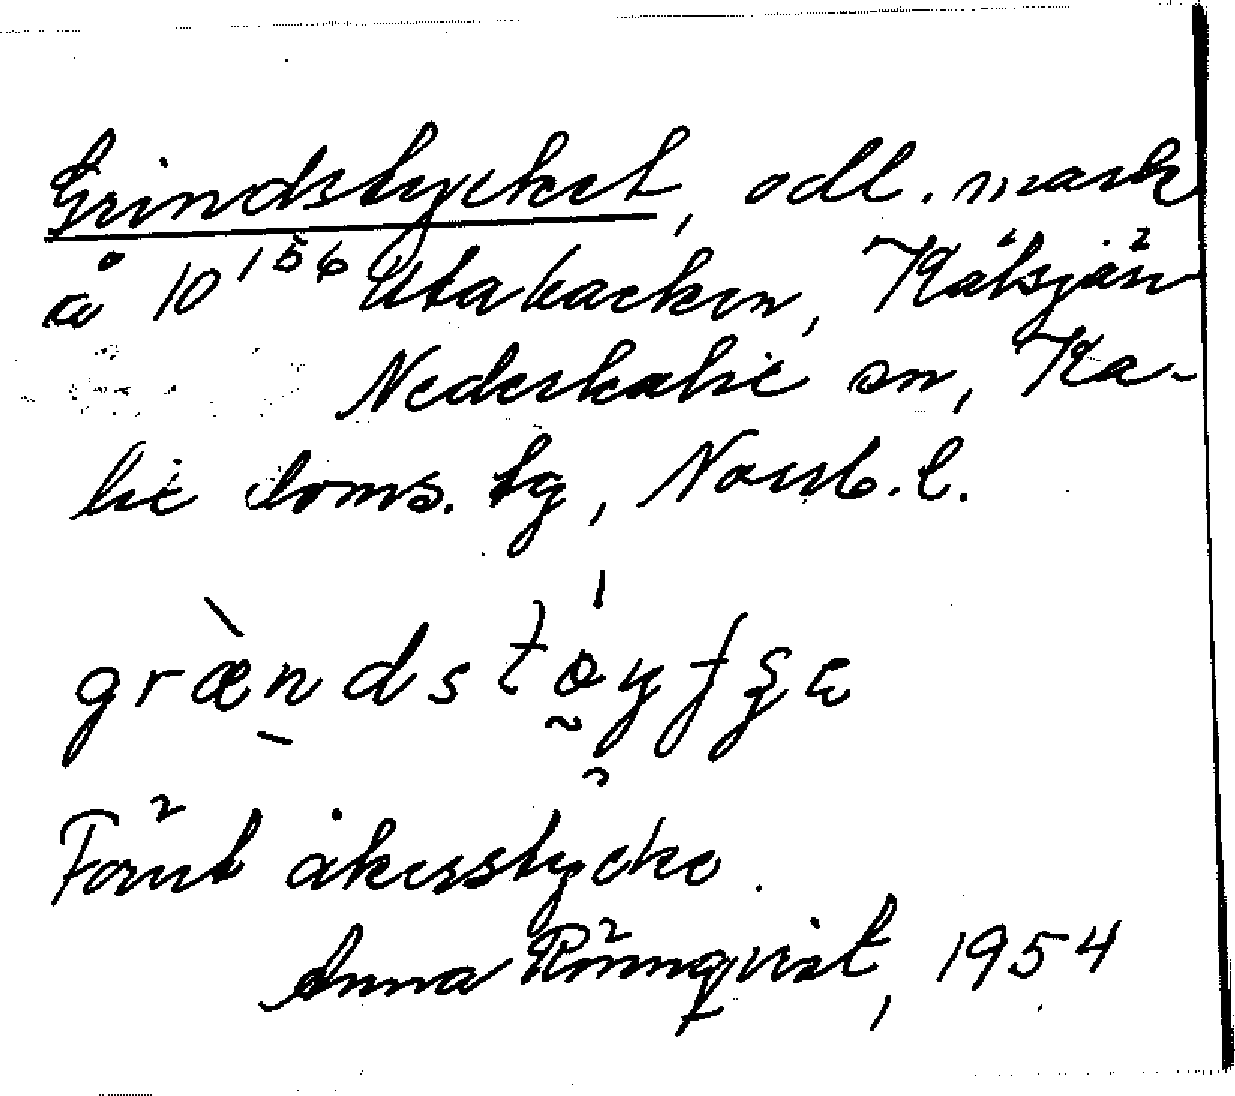 Grindstycket, odl. mark
å 10¹⁵⁶ Utabacken, Rålsjärv
Nederkalix sn, Ka-
lix doms. tg, Norrb. l.
grændstøyƒʒɛ
Förut åkerstycke.
Anna Rönnqvist, 1954